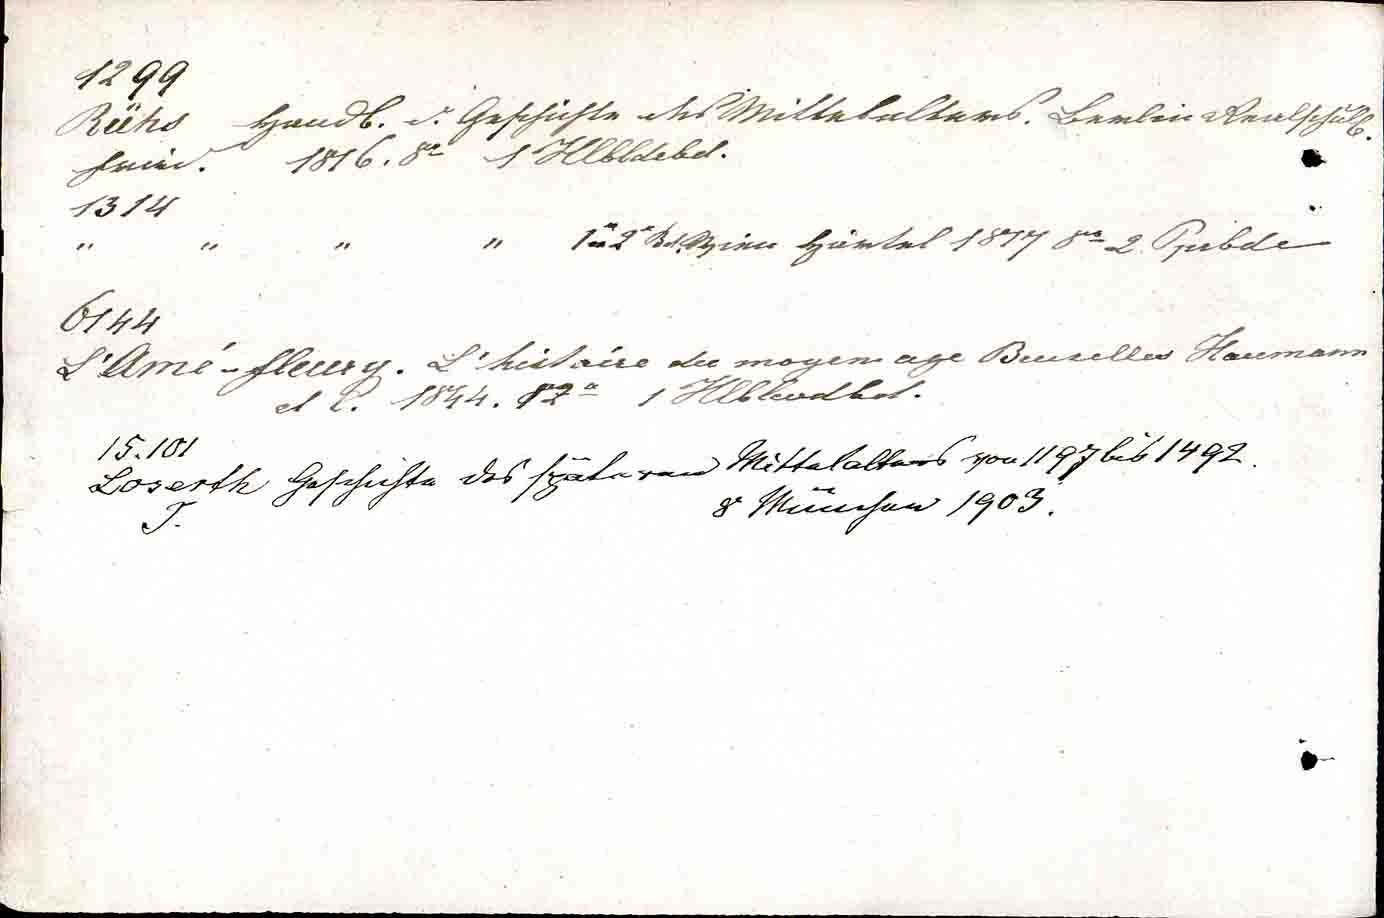 1299
Rühs Handb. d. Geschichte des Mittelalters. Berlin Realschulb.
Fried. 1816. 8° 1 Hlbldrbd.
1314
" " " " 1 u 2 Bd. Wien Härtel 1817 8° 2 Ppbde
6144
L'Amé-fleury. L'histoire du moyen age Bruxelles Haumann
et C. 1844. 12° 1 Hlblwdbd.
15.101
Loserth Geschichte des späteren Mittelalters von 1197 bis 1492.
J. 8° München 1903.